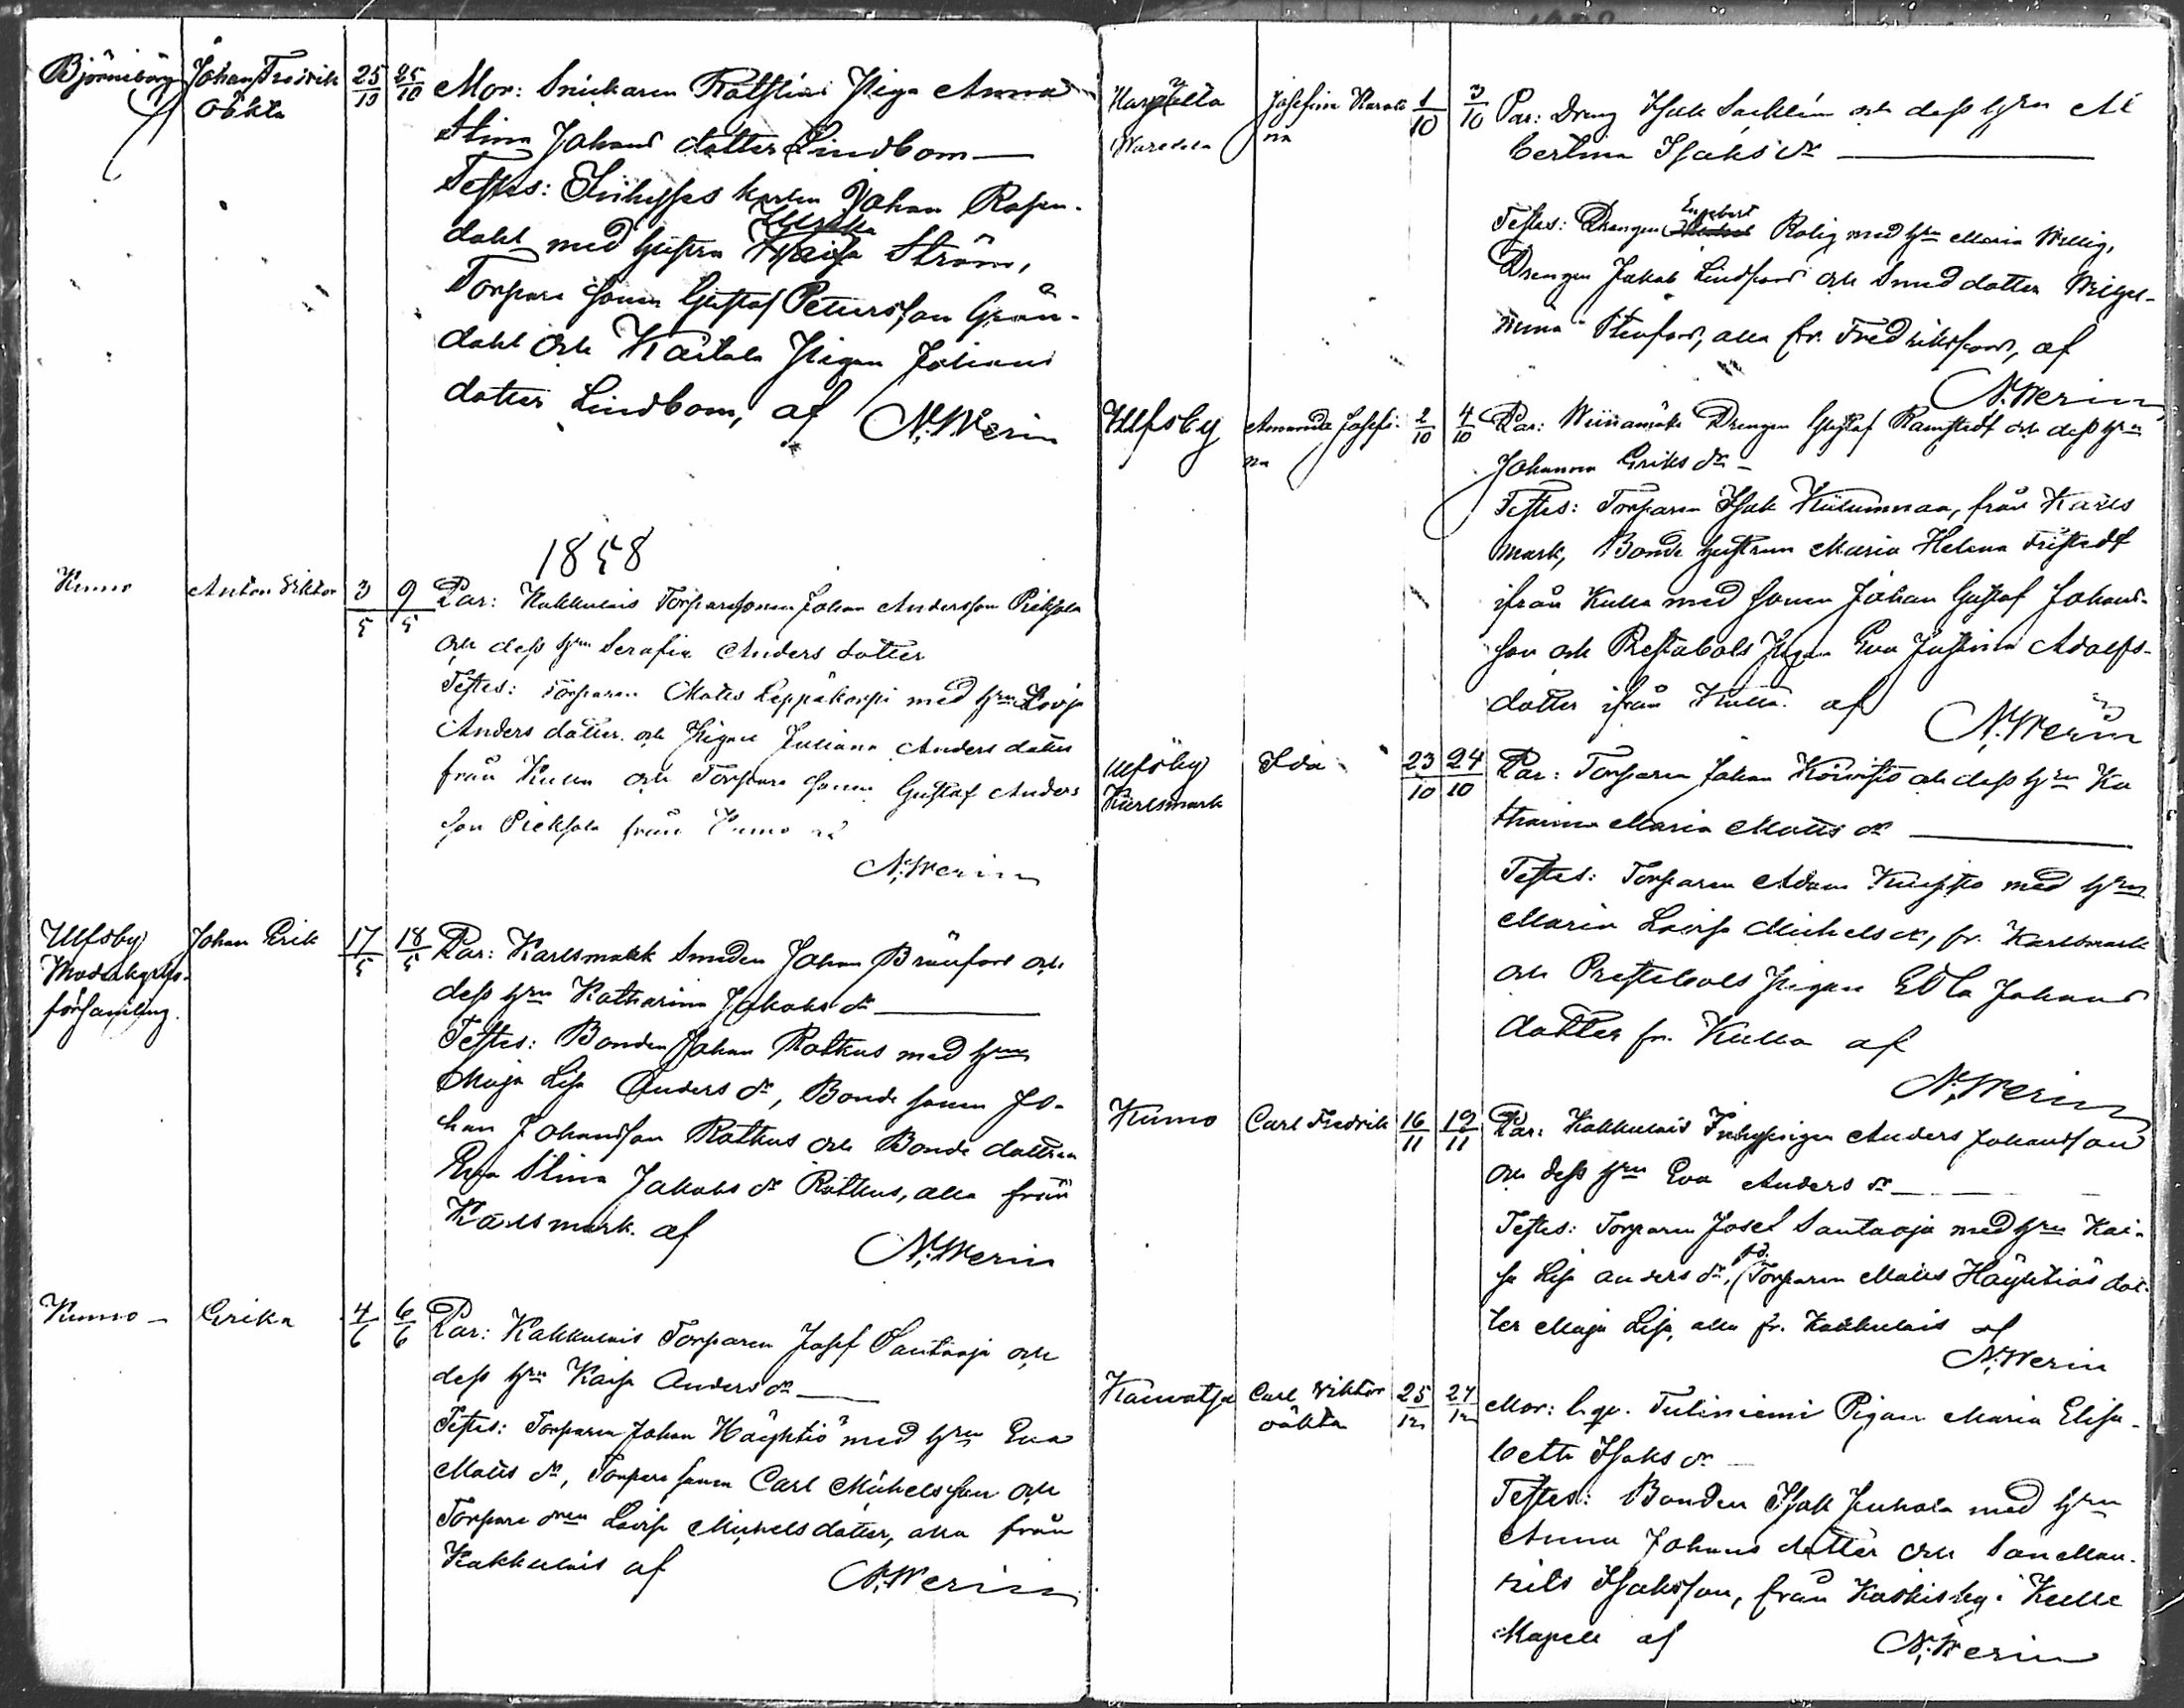 Björneborg Johan Fredrik 25/10 25/10 Mor: Snickaren Piga Anna
oäkta Stina Johans dotter Lindbom
Testes: karlen Johan Rosen-
Ulrika
dahl med hustru Kaisa Ström,
Torpare sonen Gustaf Petersson Grön-
dahl och Pigan Johans
dotter Lindbom, af N. Werin
1858
Kumo Anton Viktor 3/5 9/5 Par: Kakkulais Torparesonen Johan Andersson
och dess hru Serafia Anders dotter
Testes: Torparen Matts Leppäkorpi med hru Lovisa
Anders dotter och Pigan Juliana Anders dotter
från Kulla och Torpare sonen Gustaf Anders
son från Kumo af
N. Werin
Ulfsby Johan Erik 17/5 18/5 Par: Karlsmark Smeden Johan och
Moderkyrko- dess hru Katharina Jakobs dr
församling. Testes: Bonden Johan Ratkus med hru
Maja Lisa Anders dr, Bonde sonen Jo-
han Johansson Ratkus och Bonde dottren
Eva Stina Jakobs dr Ratkus, alla från
Karlsmark. af
N. Werin
Kumo Erika 4/6 6/6 Par: Kakkulais Torparen Josef Santaoja och
dess hru Kaisa Anders dr
Testes: Torparen Johan Häyhtiö med hru Eva
Matts dr, Torpare sonen Carl Michelsson och
Torpare dren Lovisa Michelsdotter, alla från
Kakkulais af N. Werin
Josefina Karoli 1/10 3/10 Par: Dreng Isak och dess hru Al
na bertina Isaks dr
Engelbert
Testes: Drengen Rolig med hru Maria Willig,
Drengen Jakob Lindfors och Smed dotter Wilhel-
mina Stenfors, alla fr. Fredriksfors, af
N. Werin
Ulfsby Amanda Josefi- 2/10 4/10 Par: Drengen Gustaf Ramstedt och dess hru
na Johanna Eriks dr
Testes: Torparen Isak från Karls
mark, Bonde hustrun Maria Helena Fristedt
ifrån Kulla med sonen Johan Gustaf Johans-
son och Prestabols Pigan Eva Justina Adolfs-
dotter ifrån Kulla. af
N. Werin
Ulfsby Ida 23/10 24/10 Par: Torparen Johan Koivisto och dess hru Ka
Karlsmark tharina Maria Matts dr
Testes: Torparen Adam med hru
Maria Lovisa Michels dr, fr. Karlsmark
och Prestabols Pigan Edla Johans
dotter fr. Kulla af
N. Werin
Kumo Carl Fredrik 16/11 19/11 Par: Kakkulais Inhysingen Anders Johansson
och dess hru Eva Anders dr
Testes: Torparen Josef Santaoja med hru Kai-
sa Lisa Anders dr, fd. Torparen Matts Häyhtiös dot-
ter Maja Lisa, alla fr. Kakkulais af
N. Werin
Carl Viktor 25/12 27/12 Mor: Pigan Maria Elisa-
oäkta beth Isaks dr
Testes: Bonden Isak Juhola med hru
Anna Johans dotter och Son Mau-
ritz Isaksson, från i Kulla
Kapell af N. Werin